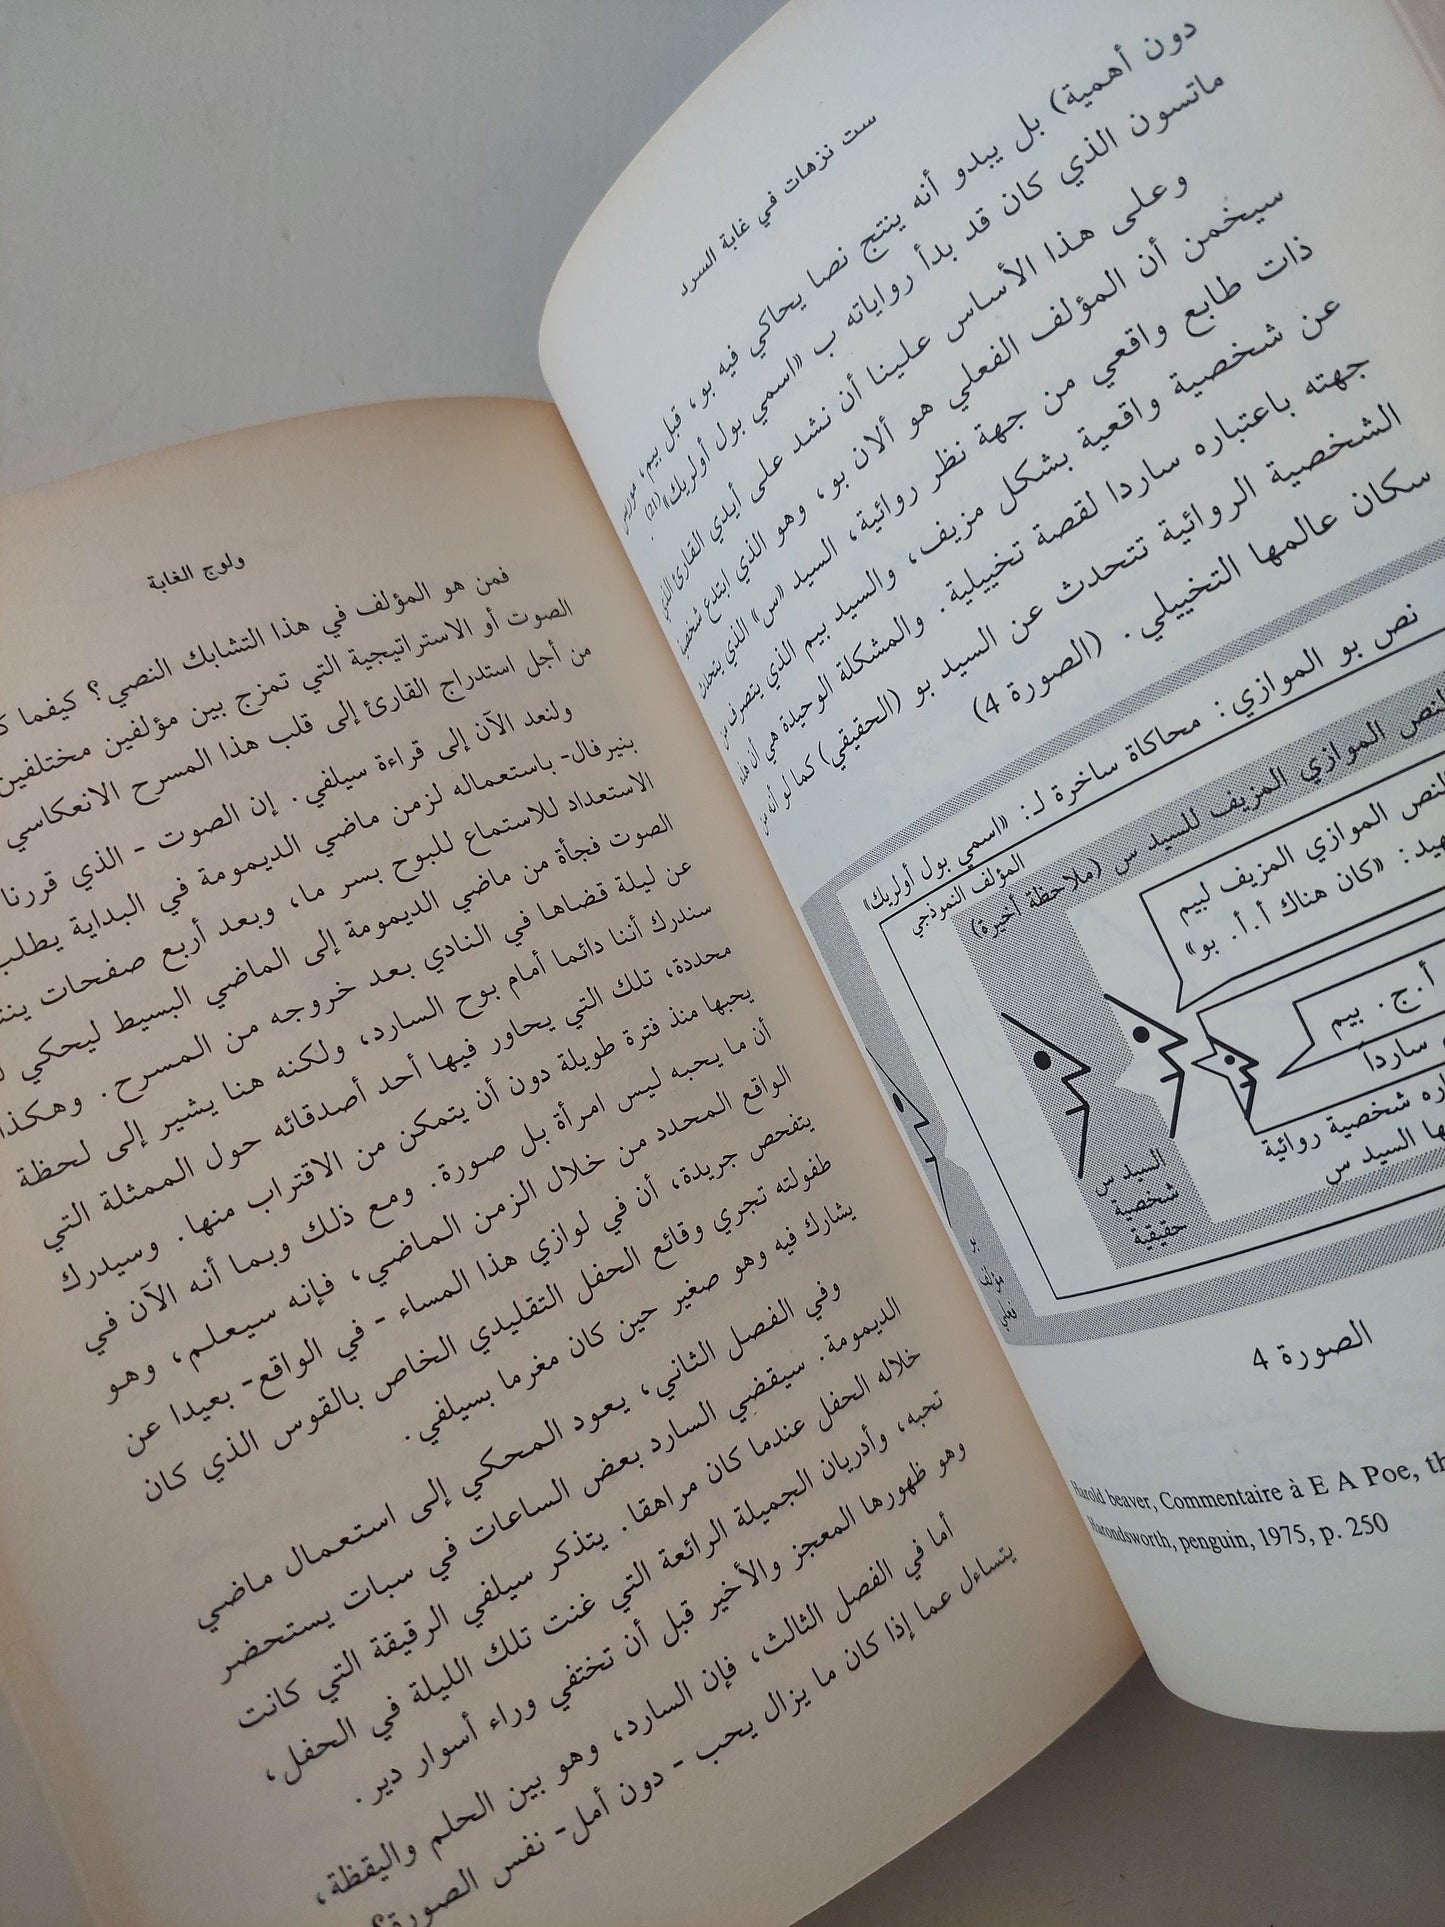 ست نزهات في غابة السرد
دون أهمية) بل يبدو أنه ينتج نصا يحاكي فيه بو، قبل بيم، موريس
ماتسون الذي كان قد بدأ رواياته ب «اسمي بول أولريك»(21).
وعلى هذا الأساس علينا أن نشد على أيدي القارئ الذي
سيخمن أن المؤلف الفعلي هو ألان بو، وهو الذي ابتدع شخصية
ذات طابع واقعي من جهة نظر روائية، السيد «س» الذي يتحدث
عن شخصية واقعية بشكل مزيف، والسيد بيم الذي يتصرف من
جهته باعتباره ساردا لقصة تخييلية. والمشكلة الوحيدة هي أن هذه
الشخصية الروائية تتحدث عن السيد بو (الحقيقي) كما لو أنه من
سكان عالمها التخييلي. (الصورة 4)
نص بو الموازي: محاكاة ساخرة لـ: «اسمي بول أولريك»
المؤلف النموذجي
النص الموازي المزيف للسيد س (ملاحظة أخيرة)
النص الموازي المزيف لبيم
«كان هناك أ.أ. بو»
أ.ج. بيم
ساردا
شخصية روائية
السيد س
السيد س
شخصية
حقيقية
بو
مؤلف
فعلي
الصورة 4
Harold beaver, Commentaire à E A Poe,
penguin, 1975, p. 250
ولوج الغابة
فمن هو المؤلف في هذا التشابك النصي؟ كيفما
الصوت أو الاستراتيجية التي تمزج بين مؤلفين مختلفين
من أجل استدراج القارئ إلى قلب هذا المسرح الانعكاسي
ولنعد الآن إلى قراءة سيلفي. إن الصوت - الذي قررنا
بنيرفال- باستعماله لزمن ماضي الديمومة في البداية يطلب
الاستعداد للاستماع للبوح بسر ما، وبعد أربع صفحات
الصوت فجأة من ماضي الديمومة إلى الماضي البسيط ليحكي
عن ليلة قضاها في النادي بعد خروجه من المسرح. وهكذا
سندرك أننا دائما أمام بوح السارد، ولكنه هنا يشير إلى لحظة
محددة، تلك التي يحاور فيها أحد أصدقائه حول الممثلة التي
يحبها منذ فترة طويلة دون أن يتمكن من الاقتراب منها. وسيدرك
أن ما يحبه ليس امرأة بل صورة. ومع ذلك وبما أنه الآن في
الواقع المحدد من خلال الزمن الماضي، فإنه سيعلم، وهو
يتفحص جريدة، أن في لوازي هذا المساء - في الواقع- بعيدا عن
طفولته تجري وقائع الحفل التقليدي الخاص بالقوس الذي كان
يشارك فيه وهو صغير حين كان مغرما بسيلفي.
وفي الفصل الثاني، يعود المحكي إلى استعمال ماضي
الديمومة. سيقضي السارد بعض الساعات في سبات يستحضر
خلاله الحفل عندما كان مراهقا. يتذكر سيلفي الرقيقة التي كانت
تحبه، وأدريان الجميلة الرائعة التي غنت تلك الليلة في الحفل،
وهو ظهورها المعجز والأخير قبل أن تختفي وراء أسوار دير.
أما في الفصل الثالث، فإن السارد، وهو بين الحلم واليقظة،
يتساءل عما إذا كان ما يزال يحب - دون أمل- نفس الصورة؟